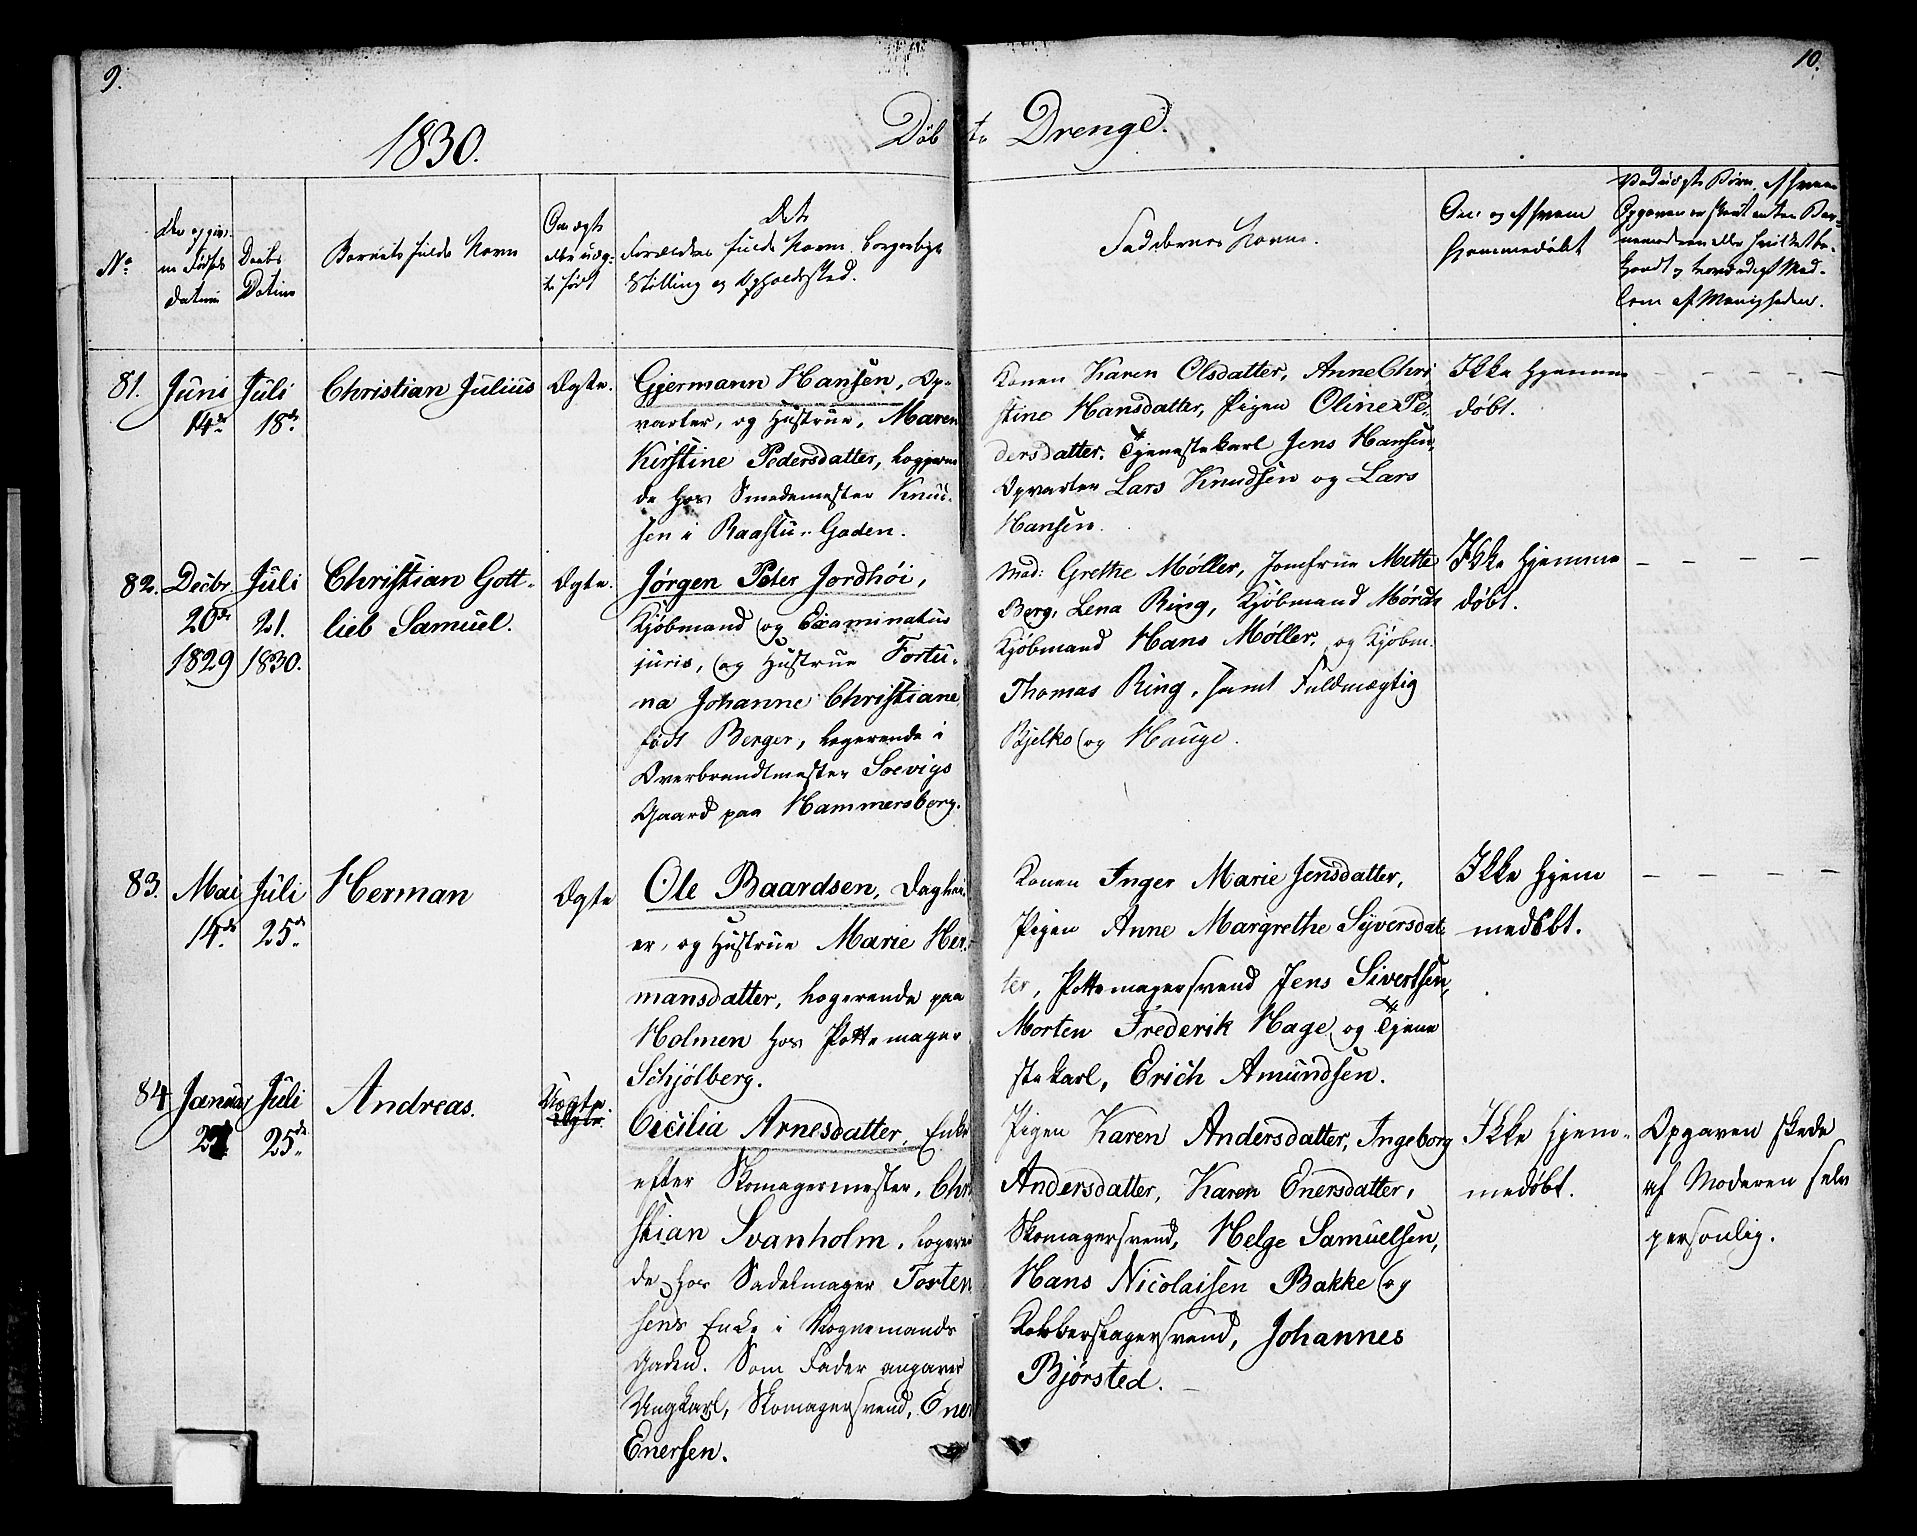 9.
10.
1830.
Döbte Drenge.
No
Den opgiv-
ne Fødsels
Datum
Daabs
Datum
Barnets fulde Navn
Om ægte
eller uæg-
te født
Det
Forældres fulde Navn, borgerlige
Stilling og Opholdssted.
Faddernes Navne.
Om og af hvem
hjemmedøbt
Ved uægte Børn, af hvem
Opgaven er skeet enten Bar-
nemoderen eller hvilket be-
kjendt og troværdigt Med-
lem af Menigheden.
81.
Juni
14de
Juli
18de
Christian Julius
Ægte.
Gjermann Hansen, Op-
varter, og Hustrue, Maren
Kirstine Pedersdatter, logeren-
de hos Smedemester Knud-
sen i Raastu-Gaden.
Konen Karen Olsdatter, Anne Chri
stine Hansdatter, Pigen Oline Pe-
dersdatter. Tjenestekarl Jens Hansen,
Opvarter Lars Knudsen og Lars
Hansen.
Ikke hjemme
døbt.
– – – – –
82.
Decbr.
20de
1829
Juli
21.
1830.
Christian Gott-
lieb Samuel.
Ægte.
Jørgen Peter Jordhøi,
Kjøbmand og Examinatus
juris, og Hustrue Fortu-
na Johanne Christiane
født Berger, logerende i
Overbrandtmester Soevigs
Gaard paa Hammersborg.
Mad: Grethe Møller, Jomfrue Mette
Berg, Lena Ring, Kjøbmand
Kjøbmand Hans Møller, og Kjøbm.
Thomas Ring, samt Fuldmægtig
Bjelke og Hauge.
Ikke hjemme
døbt.
– – – – –
83.
Mai
14de
Juli
25de
Herman
Ægte
Ole Baardsen, Daglei-
er, og Hustrue Marie Her-
mansdatter, logerende paa
Holmen hos Pottemager
Schjølberg.
Konen Inger Marie Jensdatter,
Pigen Anne Margrethe Syversdat-
ter, Pottemagersvend Jens Sivertsen,
Morten Frederik Hage og Tjene
stekarl, Erich Amundsen.
Ikke hjem
medøbt.
– – – – –
84
Januar
Juli
25de
Andreas.
Uægte.
Ægte.
Cicilia Arnesdatter, Enke
efter Skomagermester, Chri
stian Svanholm, logeren
de hos Sadelmager Torsten
sens Enke i Vognmands
Gaden. Som Fader angaves
Ungkarl, Skomagersvend, Ener
Enersen.
Pigen Karen Andersdatter, Ingeborg
Andersdatter, Karen Enersdatter,
Skomagersvend, Helge Samuelsen,
Hans Nicolaisen Bakke og
Kobberslagersvend, Johannes
Bjørsted. –
Ikke hjem-
medøbt.
Opgaven skede
af Moderen selv
personlig.